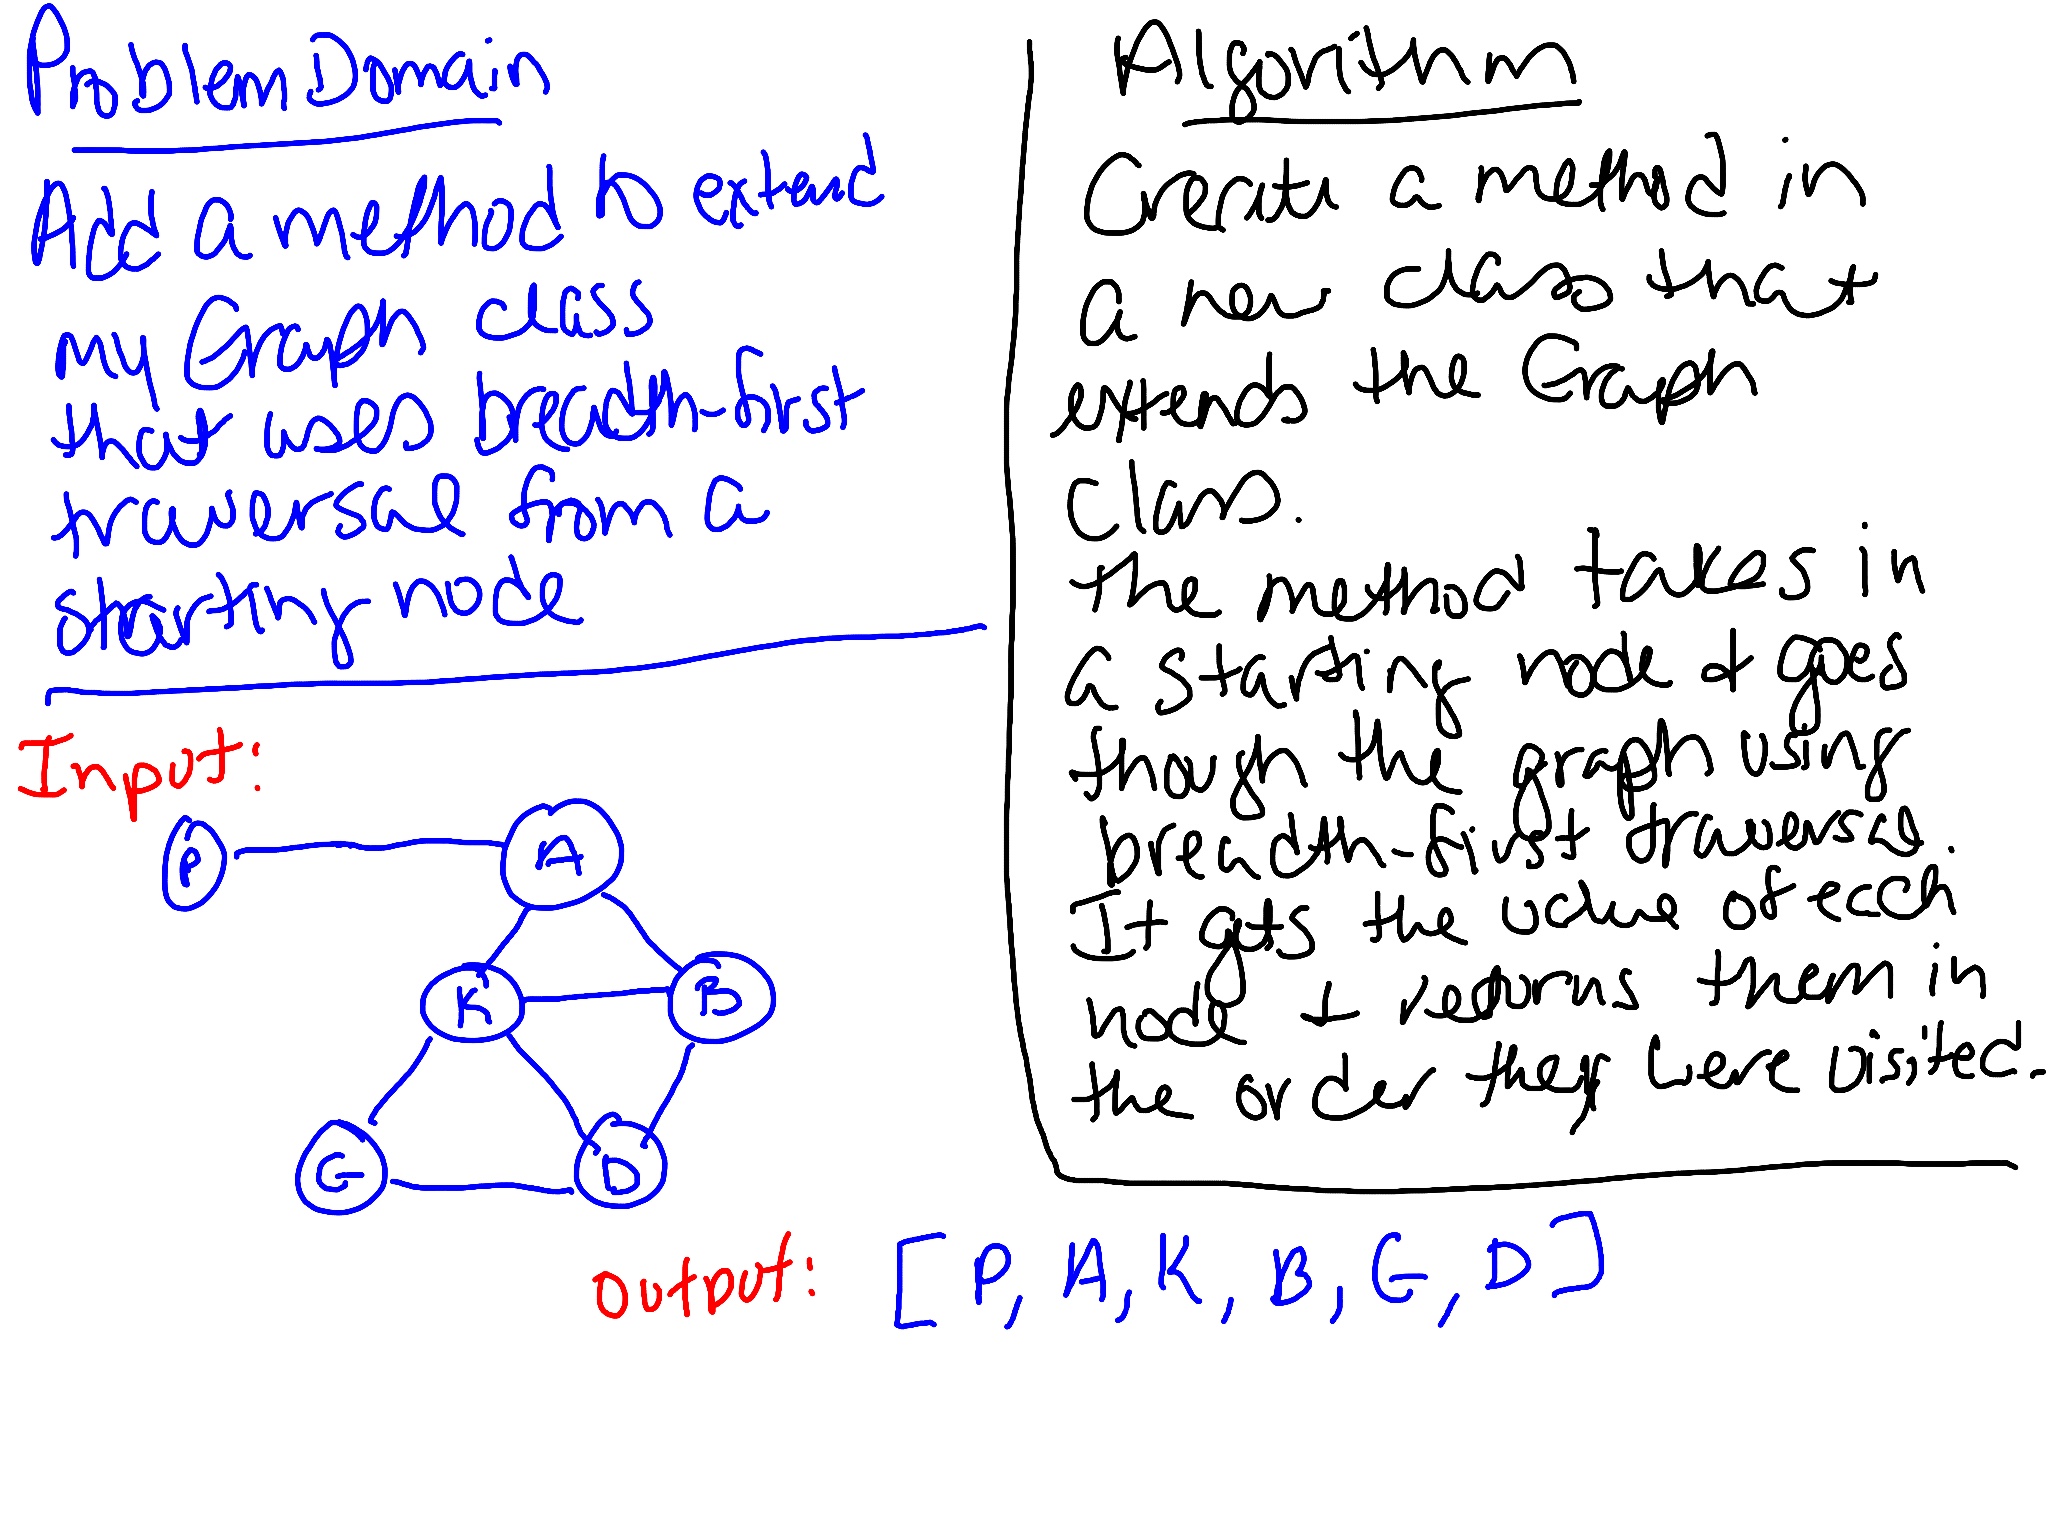 Problem Domain
Add a method to extend
my Graph class
that uses breadth-first
traversal from a
starting node
Input:
P
A
K
B
G
D
Output: [P, A, K, B, G, D]
Algorithm
Create a method in
a new class that
extends the Graph
class.
The method takes in
a starting node + goes
though the graph using
breadth-first traversal.
It gets the value of each
node + returns them in
the order they were visited.